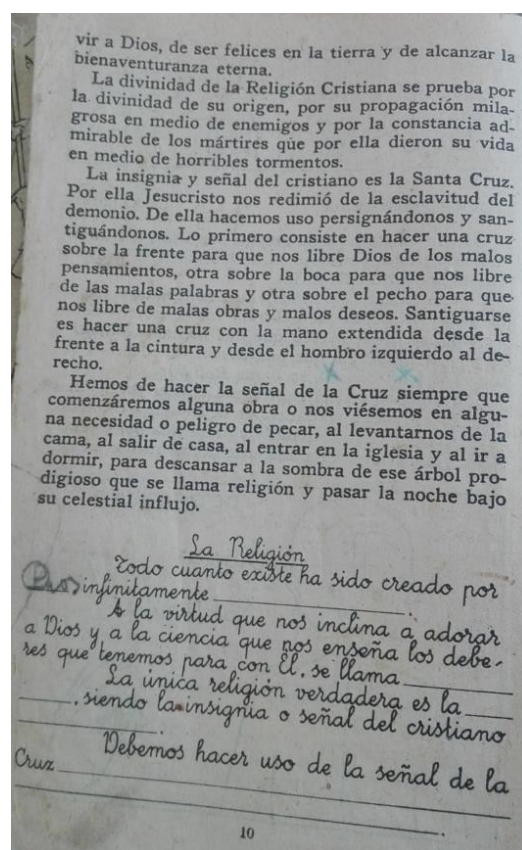 vir a Dios, de ser felices en la tierra y de alcanzar la
bienaventuranza eterna.
La divinidad de la Religión Cristiana se prueba por
la divinidad de su origen, por su propagación mila-
grosa en medio de enemigos y por la constancia ad-
mirable de los mártires que por ella dieron su vida
en medio de horribles tormentos.
La insignia y señal del cristiano es la Santa Cruz.
Por ella Jesucristo nos redimió de la esclavitud del
demonio. De ella hacemos uso persignándonos y san-
tiguándonos. Lo primero consiste en hacer una cruz
sobre la frente para que nos libre Dios de los malos
pensamientos, otra sobre la boca para que nos libre
de las malas palabras y otra sobre el pecho para que
nos libre de malas obras y malos deseos. Santiguarse
es hacer una cruz con la mano extendida desde la
frente a la cintura y desde el hombro izquierdo al de-
recho.
Hemos de hacer la señal de la Cruz siempre que
comenzáremos alguna obra o nos viésemos en algu-
na necesidad o peligro de pecar, al levantarnos de la
cama, al salir de casa, al entrar en la iglesia y al ir a
dormir, para descansar a la sombra de ese árbol pro-
digioso que se llama religión y pasar la noche bajo
su celestial influjo.
La Religión
Todo cuanto existe ha sido creado por
Dios infinitamente ____________.
A la virtud que nos inclina a adorar
a Dios y a la ciencia que nos enseña los debe-
res que tenemos para con Él, se llama ________
La única religión verdadera es la ____
____, siendo la insignia o señal del cristiano
____________.
Debemos hacer uso de la señal de la
Cruz ____________
____________.
10